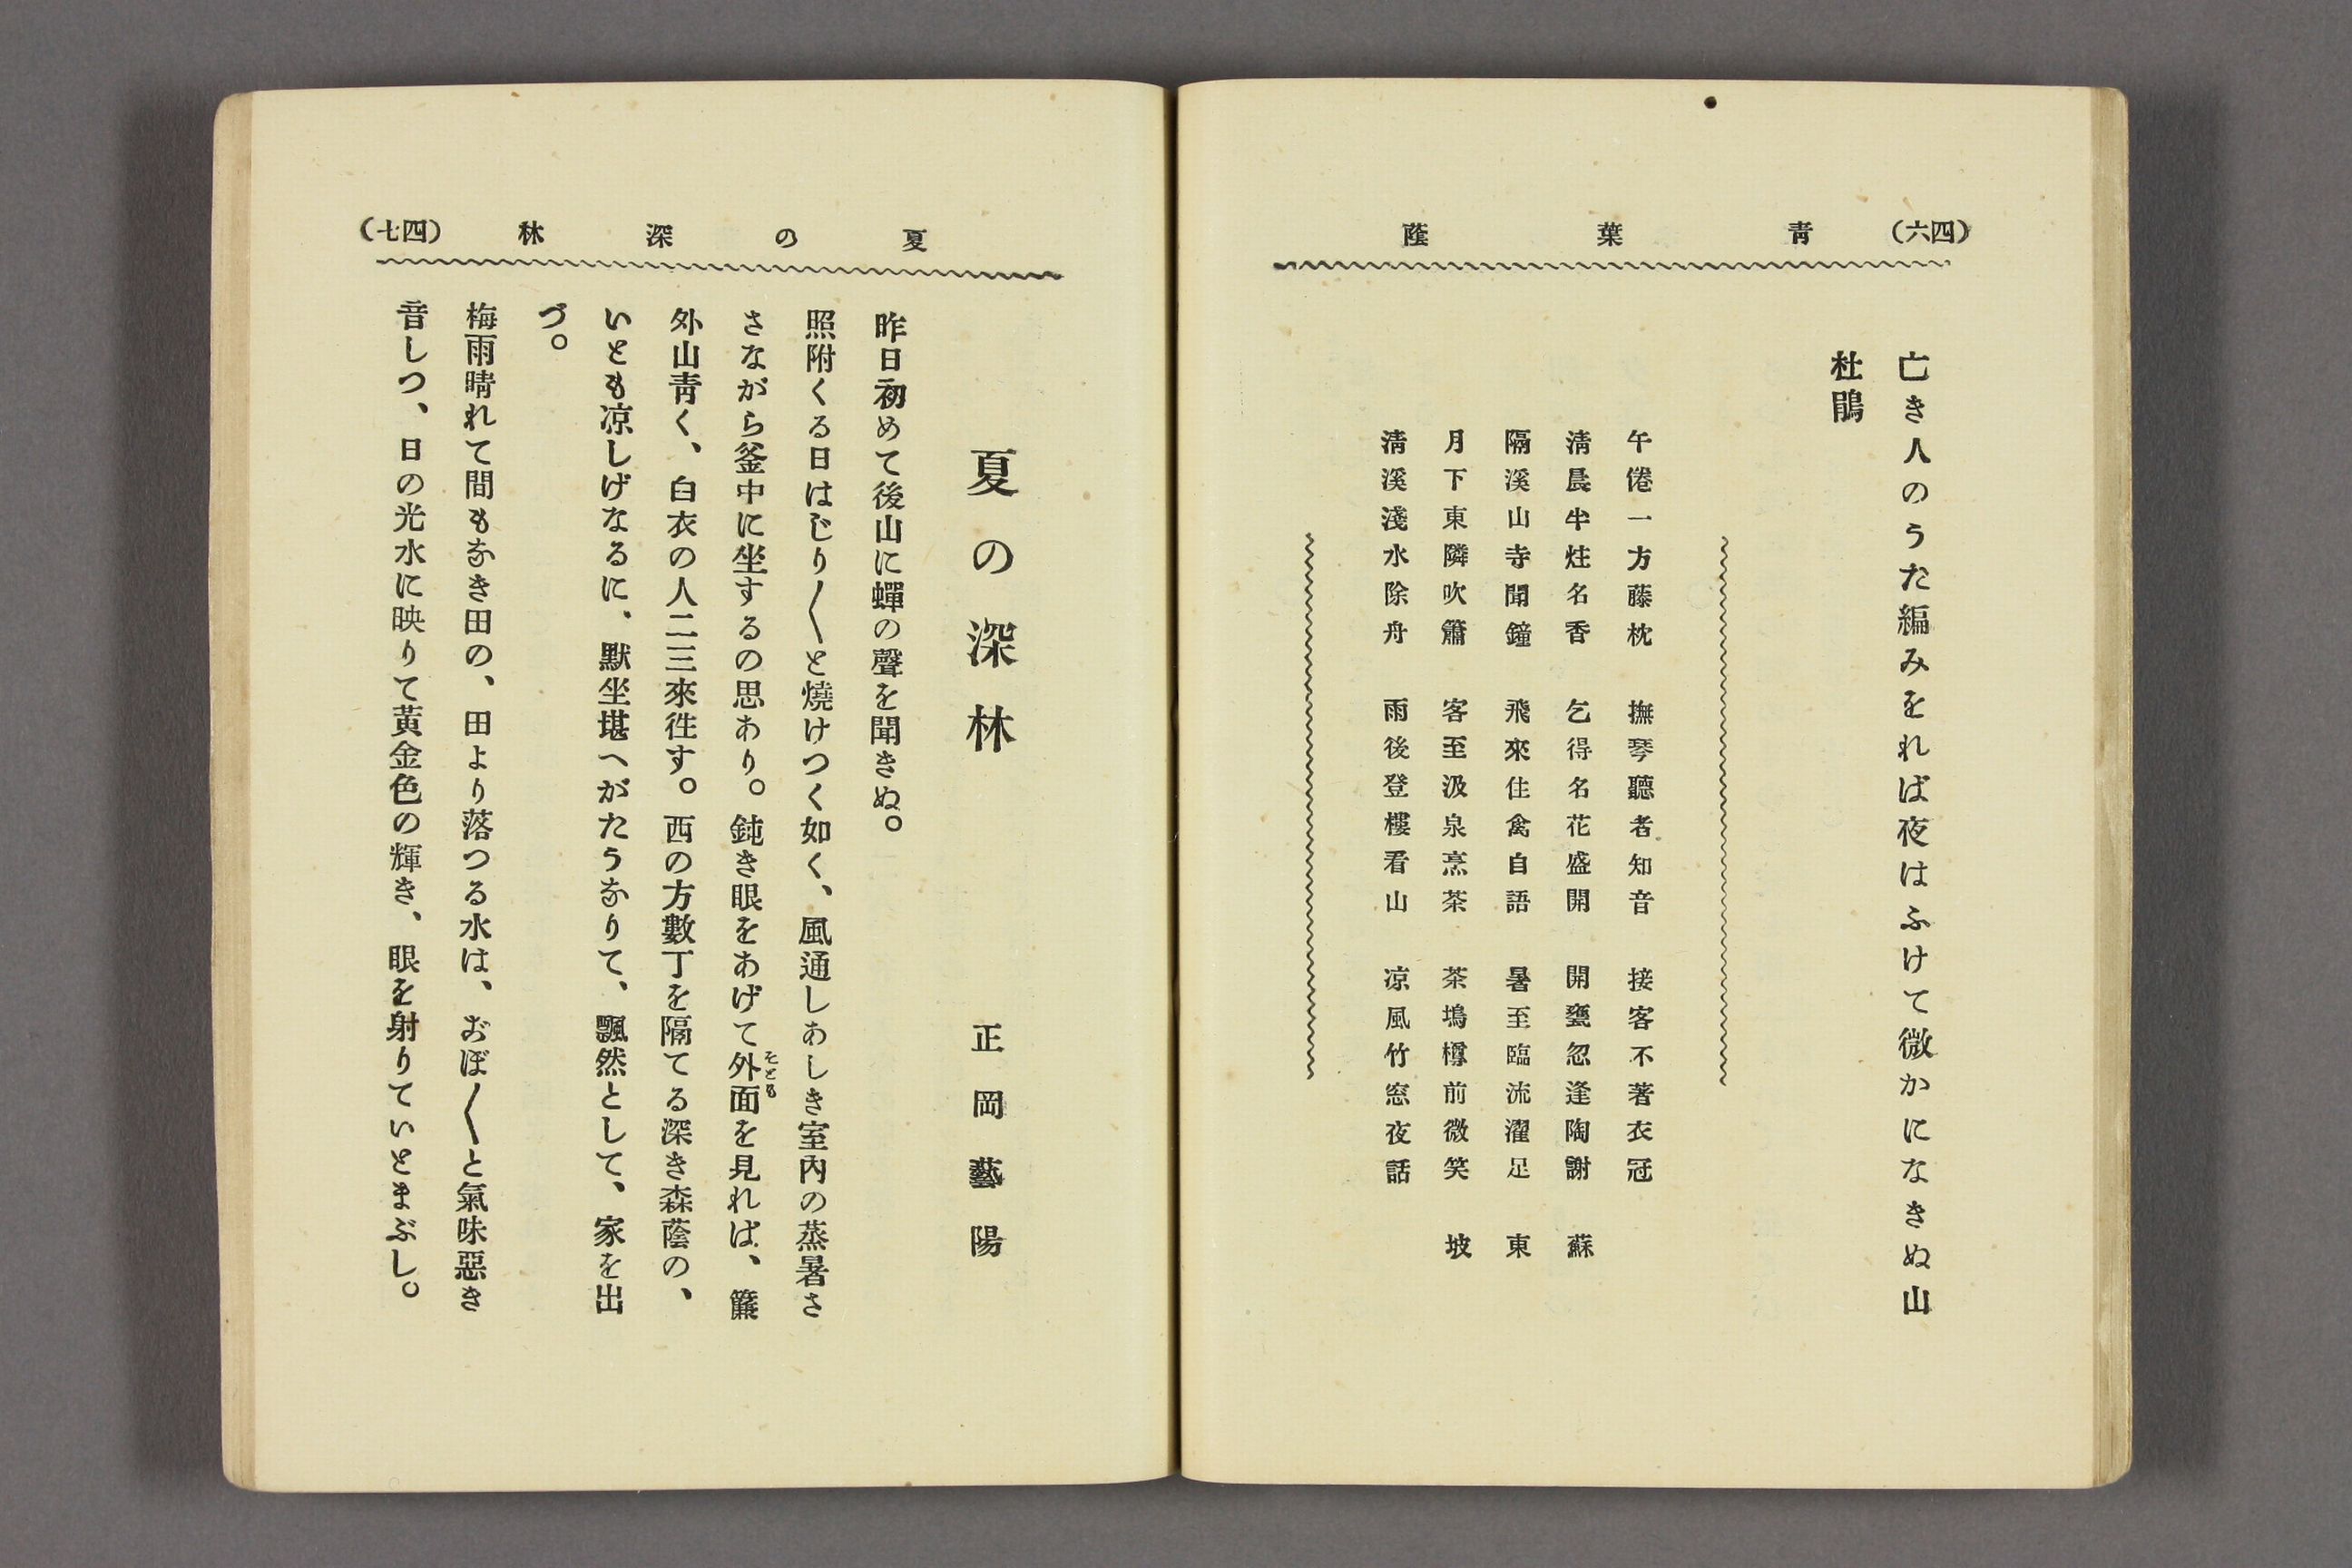 (四六)　青葉蔭
亡き人のうた編みをれば夜はふけて微かになきぬ山
杜鵑
午倦一方藤枕　撫琴聽者知音　接客不著衣冠
淸晨半炷名香　乞得名花盛開　開甕忽逢陶謝　蘇
隔溪山寺聞鐘　飛來住禽自語　暑至臨流濯足　東
月下東隣吹簫　客至汲泉烹茶　茶塢樽前微笑　坡
淸溪淺水除舟　雨後登樓看山　凉風竹窓夜話
夏の深林　(四七)
夏の深林　正岡藝陽
昨日初めて後山に蟬の聲を聞きぬ。
照附くる日はじり〱と燒けつく如く、風通しあしき室內の蒸暑さ
さながら釜中に坐するの思あり。鈍き眼をあげて外面を見れば、簾
そとも
外山靑く、白衣の人二三來徃す。西の方數丁を隔てる深き森蔭の、
いとも凉しげなるに、默坐堪へがたうなりて、飄然として、家を出
づ。
梅雨晴れて間もなき田の、田より落つる水は、おぼ〱と氣味惡き
音しつ、日の光水に映りて黃金色の輝き、眼を射りていとまぶし。